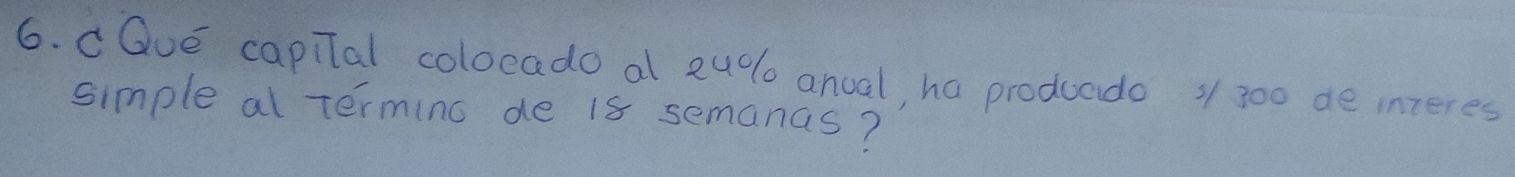 6. ¿Qué capital colocado al 24% anual, ha producido s/ 300 de interes
simple al término de 18 semanas?